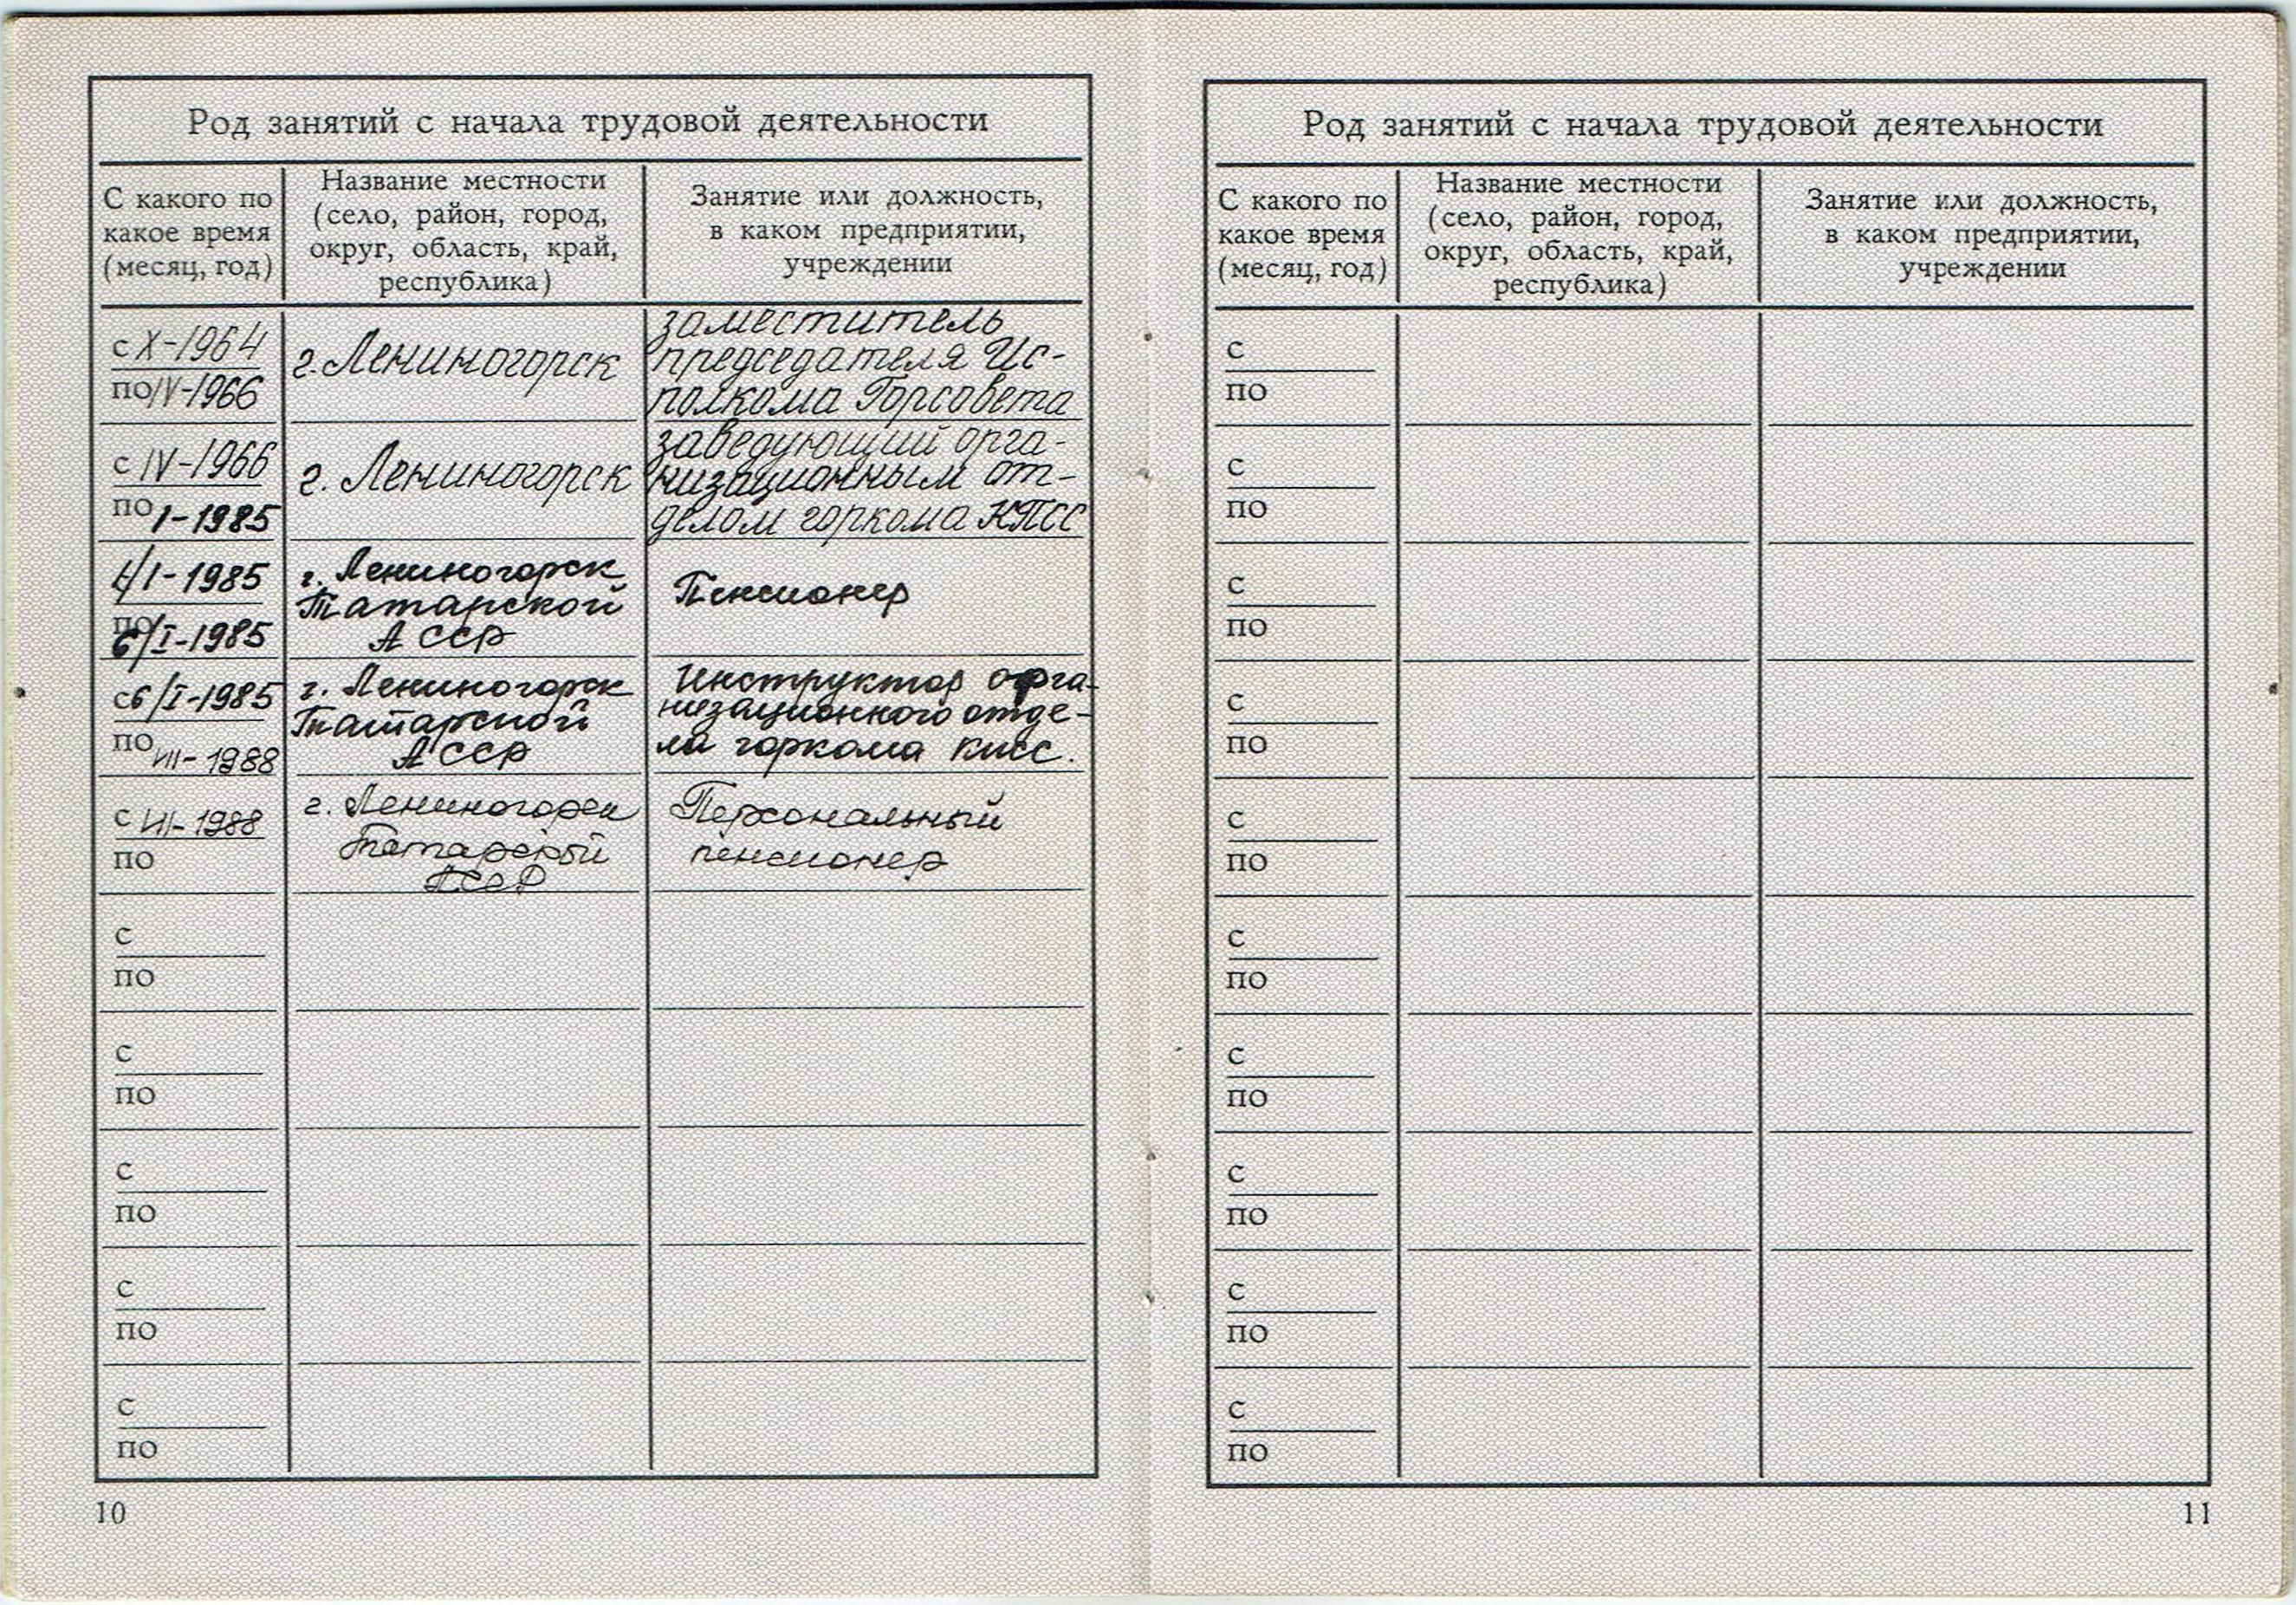 Род занятий с начала трудовой деятельности
С какого по
какое время
(месяц, год)
Название местности
(село, район, город,
округ, область, край,
республика)
Занятие или должность,
в каком предприятии,
учреждении
с X-1964
по IV-1966
г. Лениногорск
заместитель
председателя Ис-
полкома Горсовета
с IV-1966
по I-1985
г. Лениногорск
заведующий орга-
низационным от-
делом горкома КПСС
/I-1985
по
6/I-1985
г. Лениногорск
Татарской
АССР
Пенсионер
с 6/I-1985
по VII-1988
г. Лениногорск
Татарской
АССР
Инструктор орга-
низационного отде-
ла горкома КПСС.
с VII-1988
по
г. Лениногорск
Татарской
АССР
Персональный
пенсионер
с
по
с
по
с
по
с
по
с
по
10
Род занятий с начала трудовой деятельности
С какого по
какое время
(месяц, год)
Название местности
(село, район, город,
округ, область, край,
республика)
Занятие или должность,
в каком предприятии,
учреждении
с
по
с
по
с
по
с
по
с
по
с
по
с
по
с
по
с
по
с
по
11